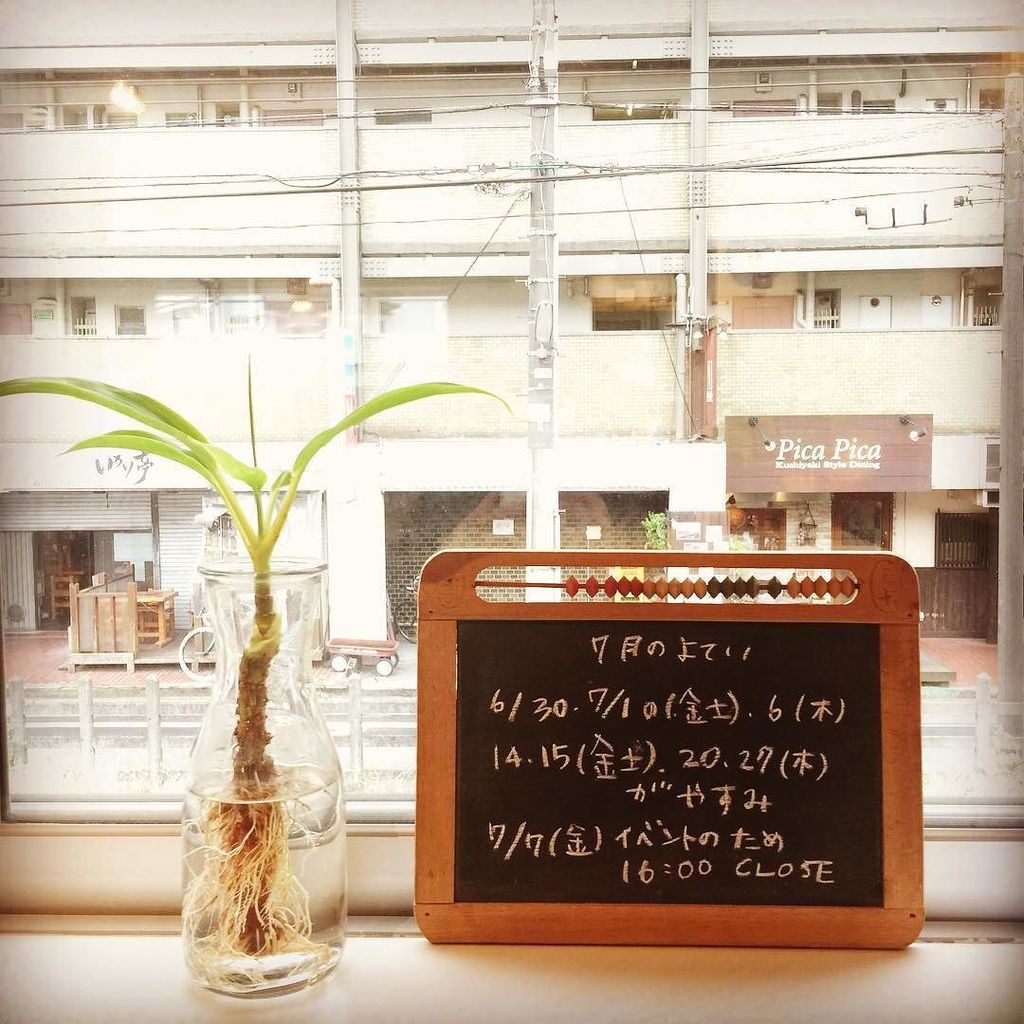 いかり亭
Pica Pica
Kushiyaki Style Dining
7月のよてい
6/30.7/10(金土).6(木)
14.15(金土).20.27(木)
がやすみ
7/7(金)イベントのため
16:00 CLOSE